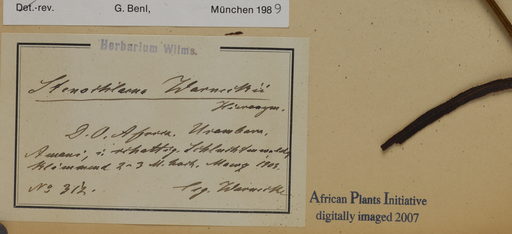 Det.-rev. G. Benl, München 1989
Herbarium Wilms.
Stenochlaena Warneckii
Hieronym.
D. O. Africa. Usambara.
Amani, i. schattig. Schluchtenwald,
kletternd 2-3 M. hoch. März 1903.
No 312. leg. Warnecke
African Plants Initiative
digitally imaged 2007